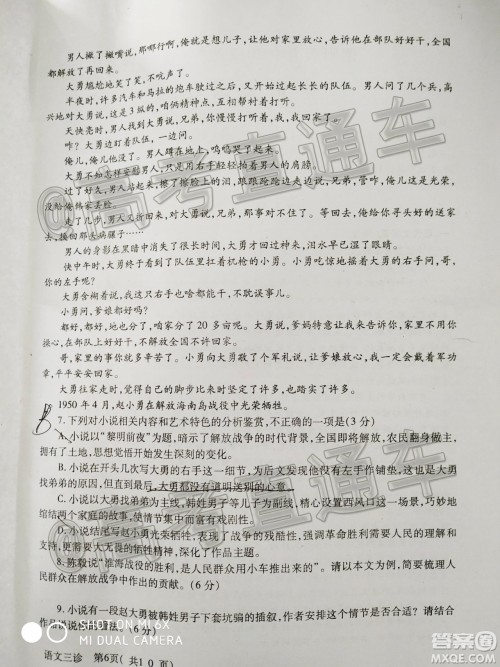 男人撇了撇嘴说，那哪行啊，俺就是想儿子，让他对家里放心，告诉他在部队好好干，全国
都解放了再回来。
大勇尴尬地笑了笑，不吭声了。
半夜时，许多汽车和马拉的炮车驶过之后，又开始过起长长的队伍。男人问了几个兵，高
兴地对大勇说，这是3纵的，咱俩精神点，互相帮衬着打听。
天快亮时，男人找到大勇说，兄弟，你慢慢打听着，我，我回家了。
咋？大勇边盯着队伍，一边问。
俺儿，俺儿他没了。男人蹲在地上，呜呜哭了起来。
大勇不知怎样安慰男人，只是用右手轻轻拍着男人的肩膀。
过了好久，男人站起来，擦了擦脸上的泪，踉踉跄跄边走边说，兄弟，管咋，俺儿这是光荣，
没给俺韩家丢脸。
走了几步，男人又折回来，对大勇说，兄弟，那事对不住了。等回去，俺给你寻头好的送家
去，接回那头病骡子……
男人的身影在黑暗中消失了很长时间，大勇才回过神来，泪水早已湿了眼睛。
快中午时，大勇终于看到了队伍里扛着机枪的小勇。小勇吃惊地摇着大勇的右手问，哥，
你的左手呢？
大勇含糊着说，我这只右手也啥都能干，不耽误事儿。
小勇问，爹娘都好吗？
都好，都好，地也分了，咱家分了20多亩呢。大勇说，爹妈特意让我来告诉你，家里不用你
操心，在部队上好好干，不解放全国不许回家。
哥，家里的事你就多辛苦了。小勇向大勇敬了个军礼说，让爹娘放心，我一定会戴着军功
章，平平安安回家。
大勇往家走时，觉得自己的脚步比来时坚定了许多，也踏实了许多。
1950年4月，赵小勇在解放海南岛战役中光荣牺牲。
B
7.下列对小说相关内容和艺术特色的分析鉴赏，不正确的一项是(3分)
A.小说以“黎明前夜”为题，暗示了解放战争的时代背景，全国即将解放，农民翻身做主，
拥有了土地，思想觉悟开始发生深刻的变化。
B.小说在开头几次写大勇的右手这一细节，为后文发现他仅有左手作铺垫，这也是大勇
找弟弟的原因，但直到最后，大勇都没有道明送别的心意。
C.小说以大勇找弟弟为主线，韩姓男子等儿子为副线，精心设置西风口这一场景，巧妙地
馆结两个家庭的故事，使情节集中而富有戏剧性。
D.小说结尾写赵小勇光荣牺牲，表现了战争的残酷性，强调革命胜利需要人民的理解和
支持，更需要大无畏的牺牲精神，深化了作品主题。
8.陈毅说“淮海战役的胜利，是人民群众用小车推出来的”。请以本文为例，简要梳理人
民群众在解放战争中作出的贡献。(6分)
9.小说有一段赵大勇被韩姓男子下套坑骗的插叙，作者安排这个情节是否合适？请结合
作品谈谈你的看法。(6分)
语文三诊 第6页(共10页)
高考直通车
高考直通车
高考直通车
SHOT ON MI6X
MI DUAL CAMERA
答案圈